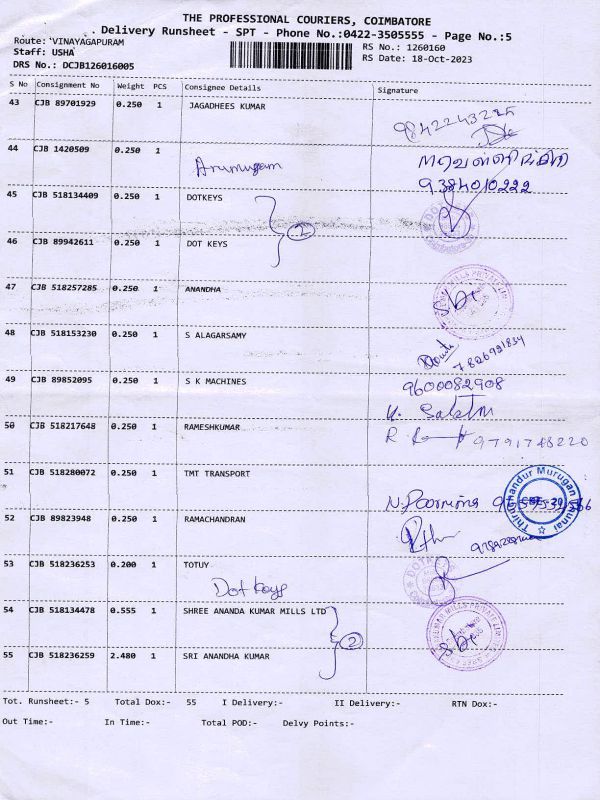 THE PROFESSIONAL COURIERS, COIMBATORE
Delivery Runsheet - SPT - Phone No.:0422-3505555 - Page No.:5
Route: VINAYAGAPURAM
Staff: USHA
RS No.: 1260160
DRS No.: DCJB126016005
RS Date: 18-Oct-2023
S No Consignment No Weight PCS Consignee Details Signature
43 CJB 89701929 0.250 1 JAGADHEES KUMAR
44 CJB 1420509 0.250 1
Arumugam
9384010222
45 CJB 518134409 0.250 1 DOTKEYS
2
46 CJB 89942611 0.250 1 DOT KEYS
47 CJB 518257285 0.250 1 ANANDHA
48 CJB 518153230 0.250 1 S ALAGARSAMY
7826921834
49 CJB 89852095 0.250 1 S K MACHINES 9600082908
50 CJB 518217648 0.250 1 RAMESHKUMAR 9791748220
51 CJB 518280072 0.250 1 TMT TRANSPORT
N. Poornima
Thiruchandur Murugan
52 CJB 89823948 0.250 1 RAMACHANDRAN
53 CJB 518236253 0.200 1 TOTUY
Dot keys
54 CJB 518134478 0.555 1 SHREE ANANDA KUMAR MILLS LTD
2
55 CJB 518236259 2.480 1 SRI ANANDHA KUMAR
Tot. Runsheet:- 5 Total Dox:- 55 I Delivery:- II Delivery:- RTN Dox:-
Out Time:- In Time:- Total POD:- Delvy Points:-